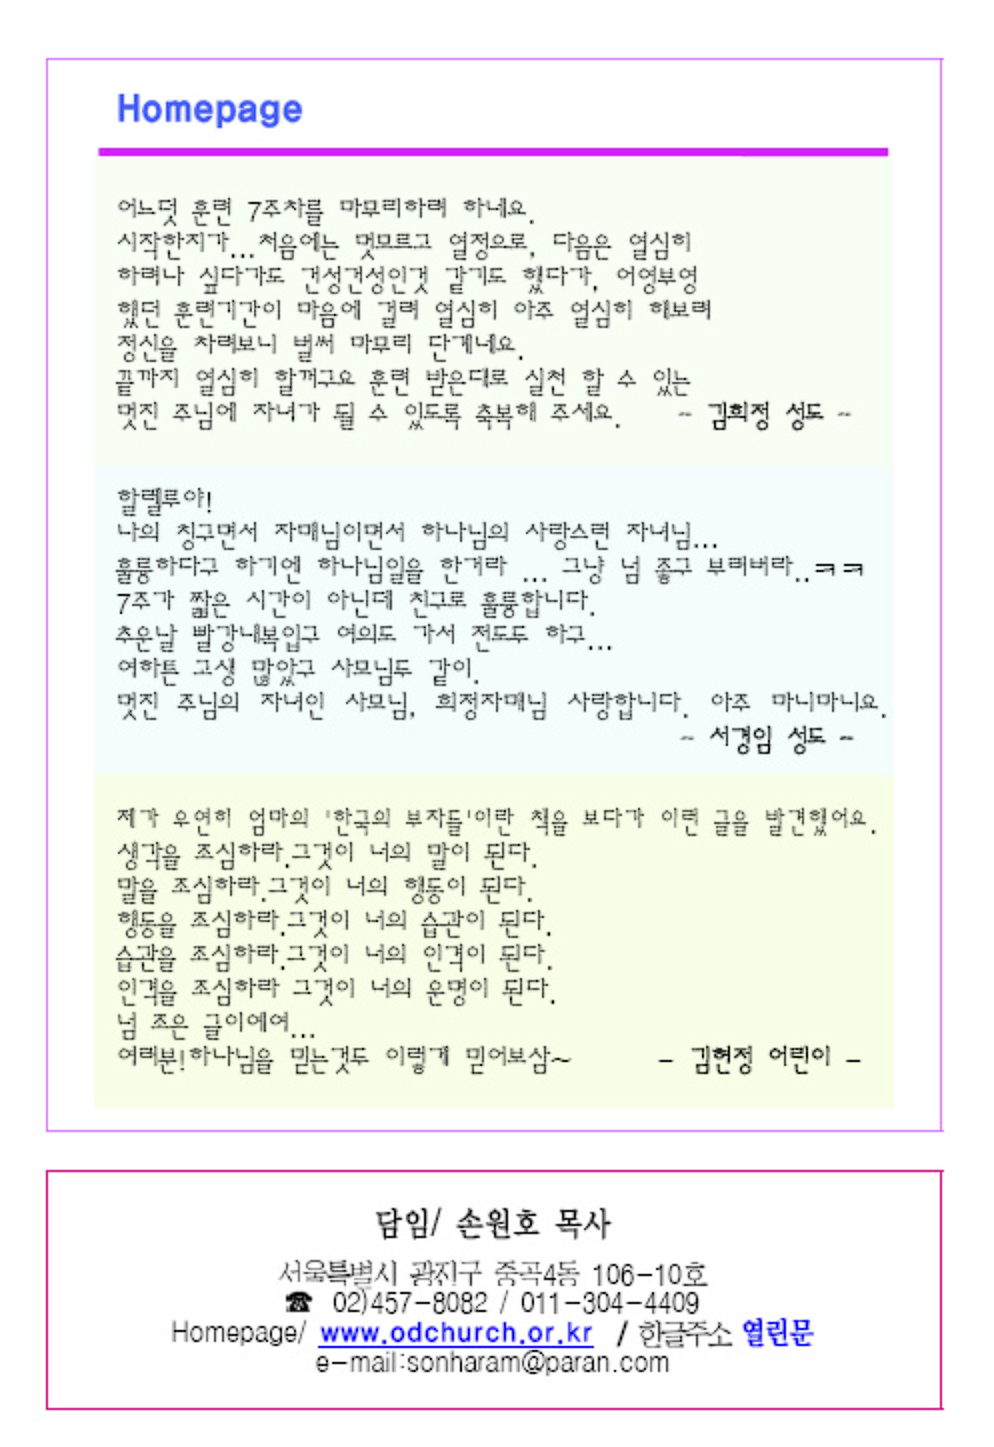 Homepage
어느덧 훈련 7주차를 마무리하려 하네요.
시작한지가...처음에는 멋모르고 열정으로, 다음은 열심히
하려나 싶다가도 건성건성인것 같기도 했다가, 어영부영
했던 훈련기간이 마음에 걸려 열심히 아주 열심히 해보려
정신을 차려보니 벌써 마무리 단계네요.
끝까지 열심히 할꺼구요 훈련 받은대로 실천 할 수 있는
멋진 주님에 자녀가 될 수 있도록 축복해 주세요. ~ 김희정 성도 ~
할렐루야!
나의 칭구면서 자매님이면서 하나님의 사랑스런 자녀님...
훌륭하다구 하기엔 하나님일을 한거라 ... 그냥 넘 좋구 부러버라..ㅋㅋ
7주가 짧은 시간이 아닌데 친구로 훌륭합니다.
추운날 빨강내복입구 여의도 가서 전도두 하구...
여하튼 고생 많았구 사모님두 같이.
멋진 주님의 자녀인 사모님, 희정자매님 사랑합니다. 아주 마니마니요.
~ 서경임 성도 ~
제가 우연히 엄마의 '한국의 부자들'이란 책을 보다가 이런 글을 발견했어요.
생각을 조심하라.그것이 너의 말이 된다.
말을 조심하라.그것이 너의 행동이 된다.
행동을 조심하라.그것이 너의 습관이 된다.
습관을 조심하라.그것이 너의 인격이 된다.
인격을 조심하라 그것이 너의 운명이 된다.
넘 조은 글이에여...
여러분!하나님을 믿는것두 이렇게 믿어보삼~ - 김현정 어린이 -
담임/ 손원호 목사
서울특별시 광진구 중곡4동 106-10호
☎ 02)457-8082 / 011-304-4409
Homepage/ www.odchurch.or.kr / 한글주소 열린문
e-mail:sonharam@paran.com